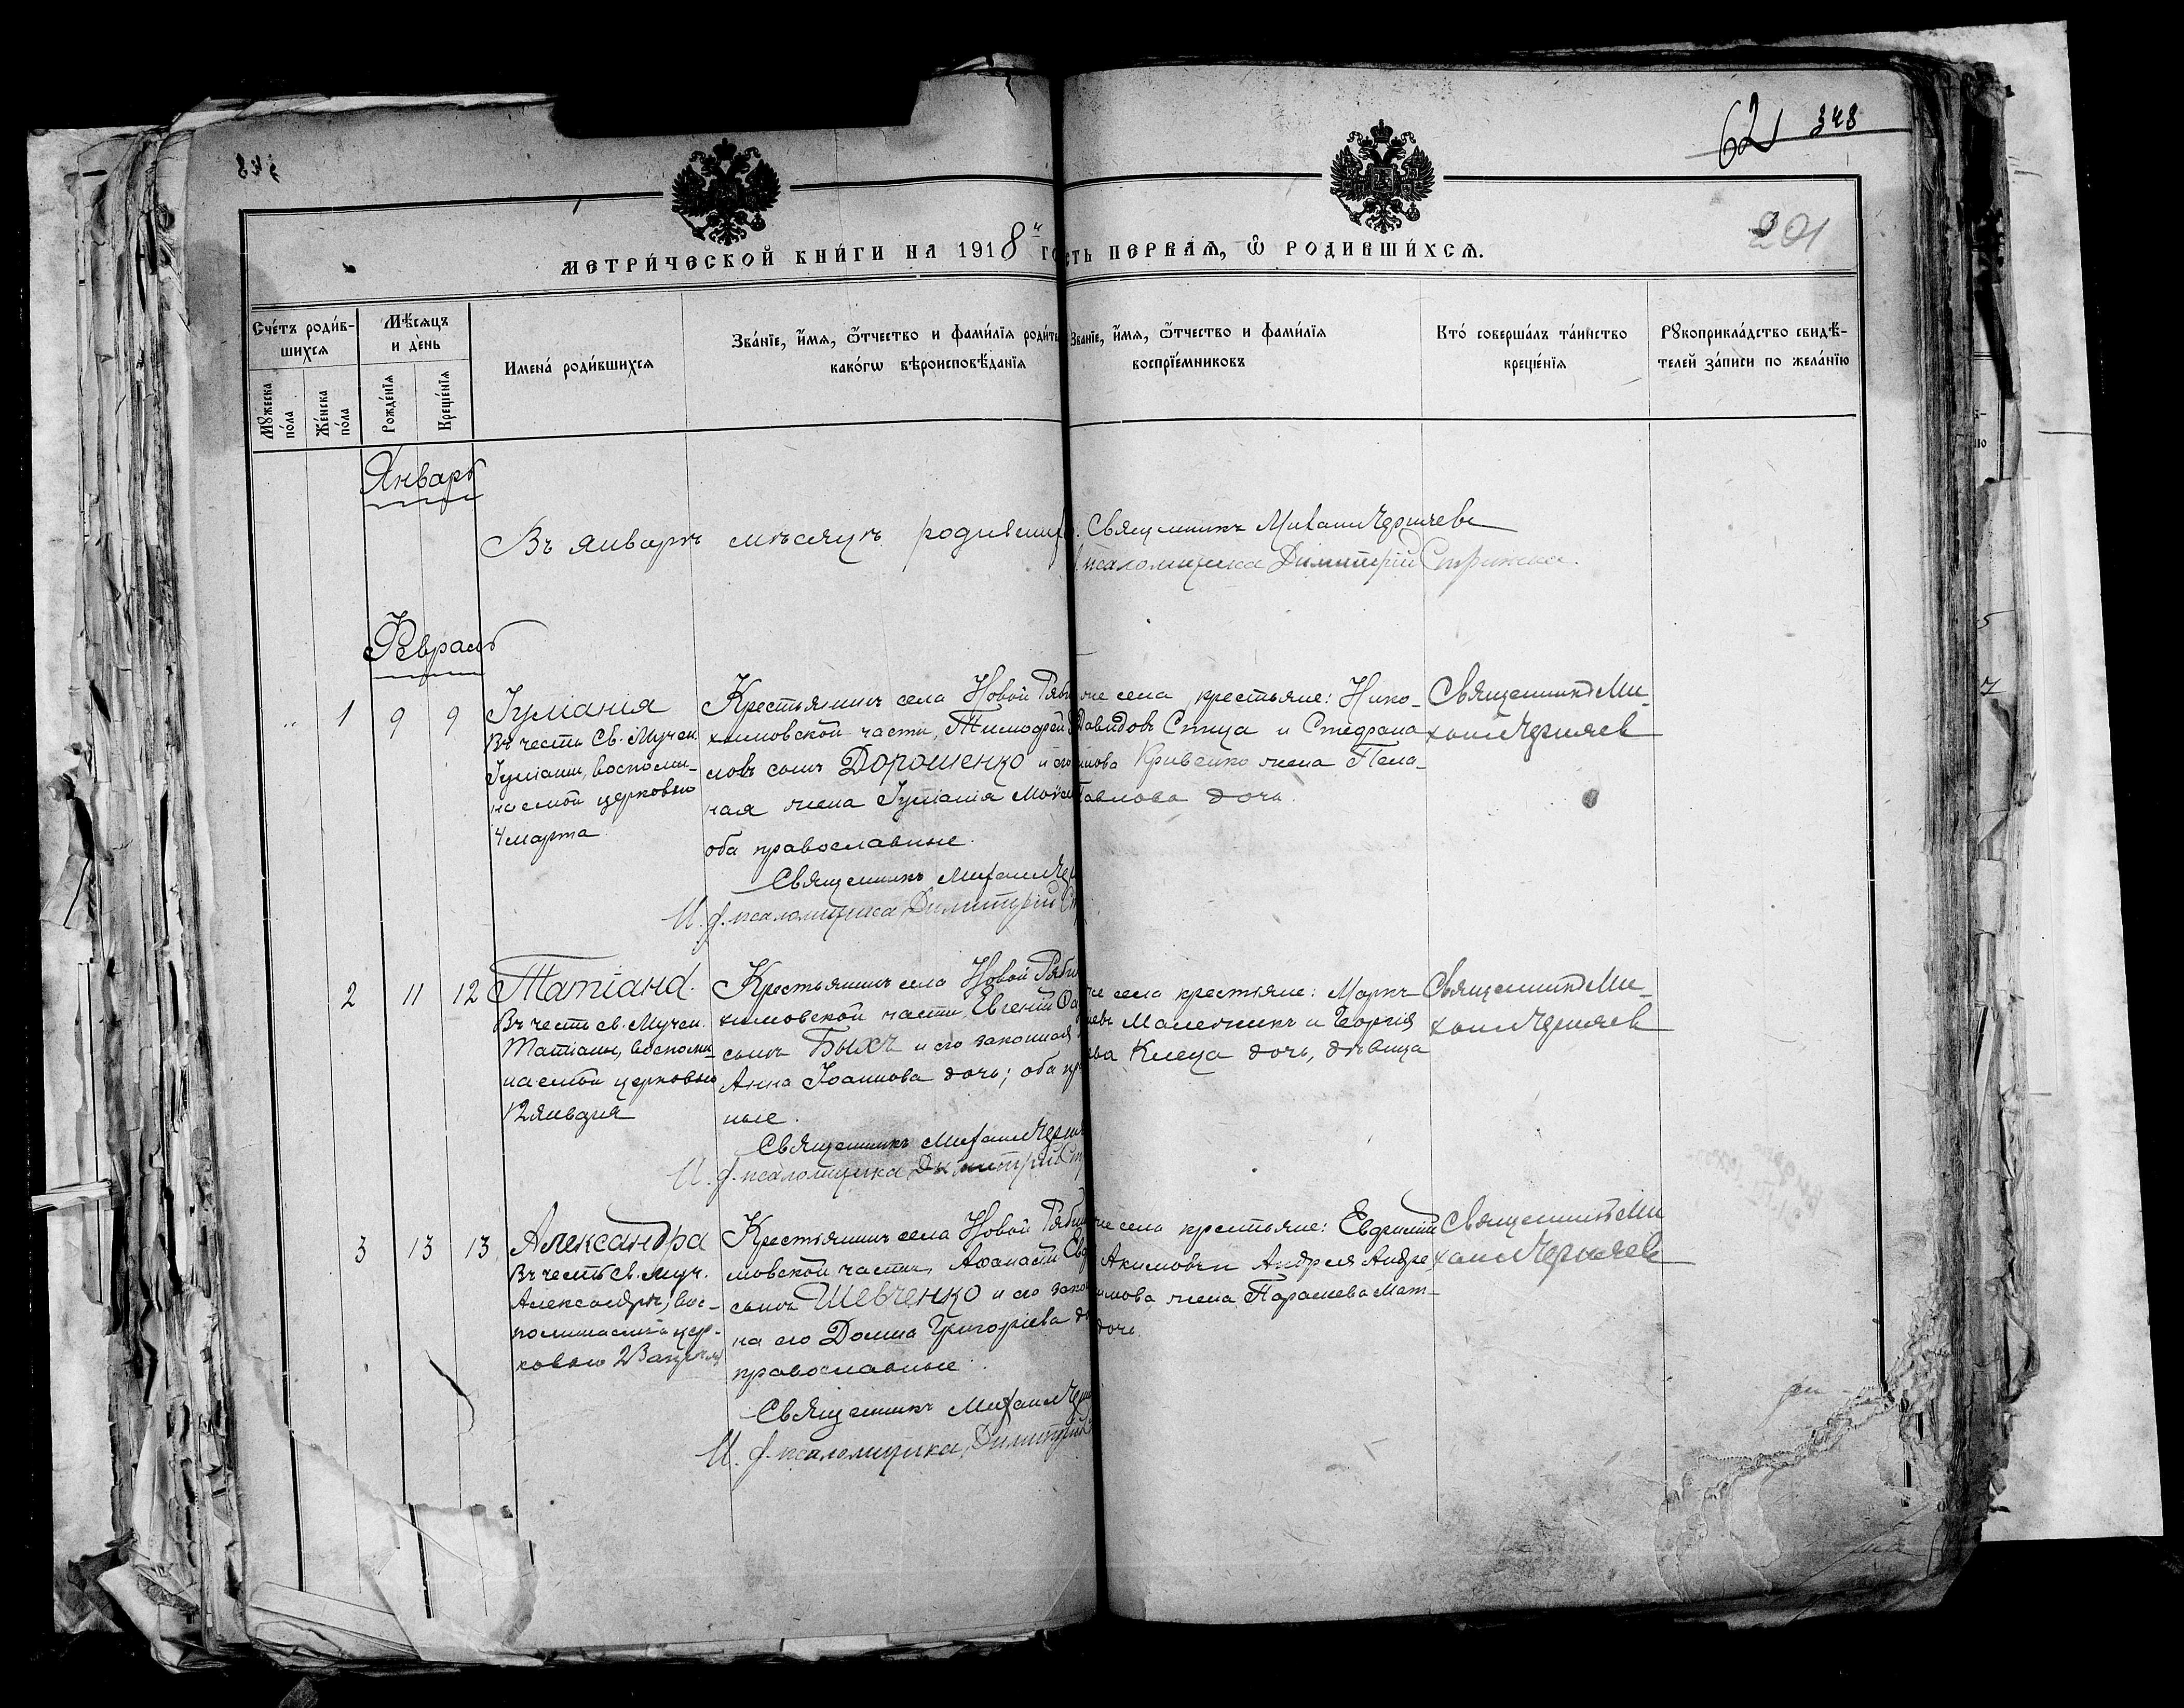 621 348
201
МЕТРИ́ЧЕСКОЙ КНИ́ГИ НА 1918 й ГО
СТЬ ПЕРВАѦ, Ѿ РОДИВШИ́ХСѦ.
Сче́тъ роди́в-
шихсѧ
Мꙋжеска по́ла
Же́нска по́ла
Мѣ́сѧцъ и де́нь
Рожде́нїѧ
Креще́нїѧ
Имена́ роди́вшихсѧ
Зва́нїе, и́мѧ, ѻ́тчество и фами́лїѧ роди́те
како́гѡ вѣроисповѣ́данїѧ
Зва́нїе, и́мѧ, ѻ́тчество и фами́лїѧ
воспрїе́мниковъ
Кто́ соверша́лъ та́инство
креще́нїѧ
Рꙋкоприкла́дство свидѣ́-
телей за́писи по жела́нїю
Январь
Въ январѣ мѣсяцѣ родивших
Священникъ Михаил Черняевъ
псаломщика Димитрій Стрижка.
Февраль
1 9 9
Іуліанія
Въ честь Св. Мучен.
Іуліаніи, воспоми-
наемой церковью
4 марта
Крестьянинъ села Новой Ряби
химовской части, Тимофей
ловъ сынъ Дорошенко и его
ная жена Іуліанія Моисе
оба православные.
Священникъ Михаил Чер
И. ф. псаломщика Димитрій Ст
же села крестьяне: Нико-
Давидовъ Спица и Стефана
Кривенко жена Пела-
Павлова дочь.
Священникъ Ми-
хаил Черняев
2 11 12
Татіана.
Въ честь св. Мучен.
Татіаны, воспоми-
наемой церковью
12 января
Крестьянинъ села Новой Ряби
химовской части, Евгеній
сынъ Быхъ и его законная
Анна Іоаннова дочь; оба пр
ные.
Священникъ Михаил Черн
И. ф. псаломщика Димитрій Ст
же села крестьяне: Маркъ
Малечникъ и Георгія
ева Клеца дочь, дѣвица
Священникъ Ми-
хаил Черняев
3 13 13
Александра
Въ честь Св. Муч.
Александры, вос-
поминаемой цер-
ковью 23 апрѣля
Крестьянинъ села Новой Ряби
мовской части, Аѳанасій Ев
сынъ Шевченко и его зако
на его Домна Григоріева д
православные.
Священникъ Михаил Чер
И. ф. псаломщика, Димитрій
же села крестьяне: Евфимій
Акимовъ и Андрея Андре
имова жена Параскева Мат-
дочь.
Священникъ Ми
хаил Черняевъ